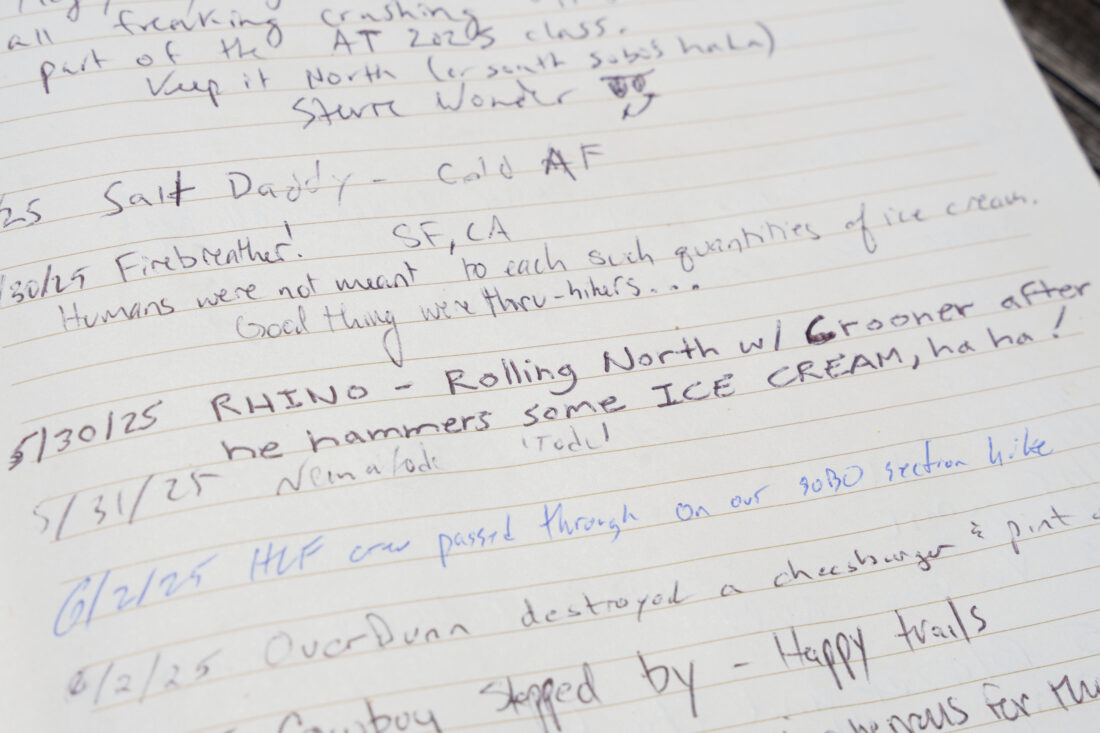 all freaking crashing
part of the AT 2025 class.
Keep it North (or south sobos haha)
Stevie Wonder
25 Salt Daddy - Cold AF
30/25 Firebreather! SF, CA
Humans were not meant to each such quantities of ice cream.
Good thing we're thru-hikers...
5/30/25 RHINO - Rolling North w/ Crooner after
he hammers some ICE CREAM, ha ha!
5/31/25
6/2/25 HLF crew passed through on our SOBO section hike
6/2/25 OverDunn destroyed a cheesburger & pint
Cowboy stopped by - Happy trails
for